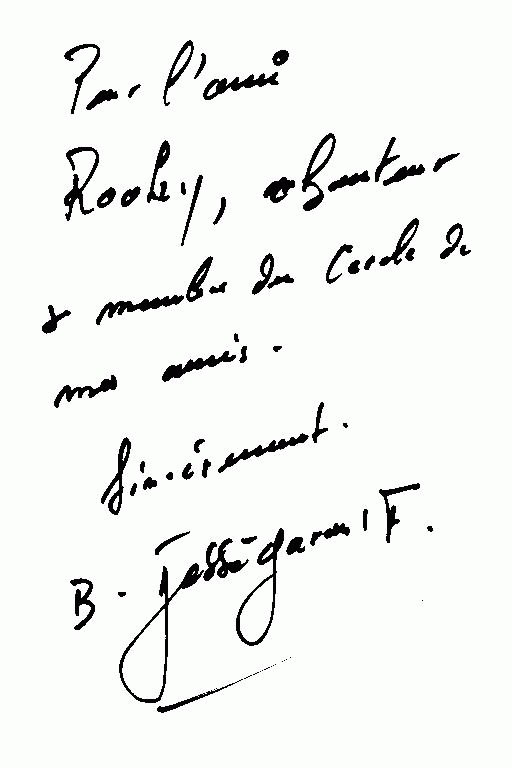 Pour l'ami
Rocky, chanteur
& membre du Cercle de
mes amis.
Sincèrement.
B. Jessé garon